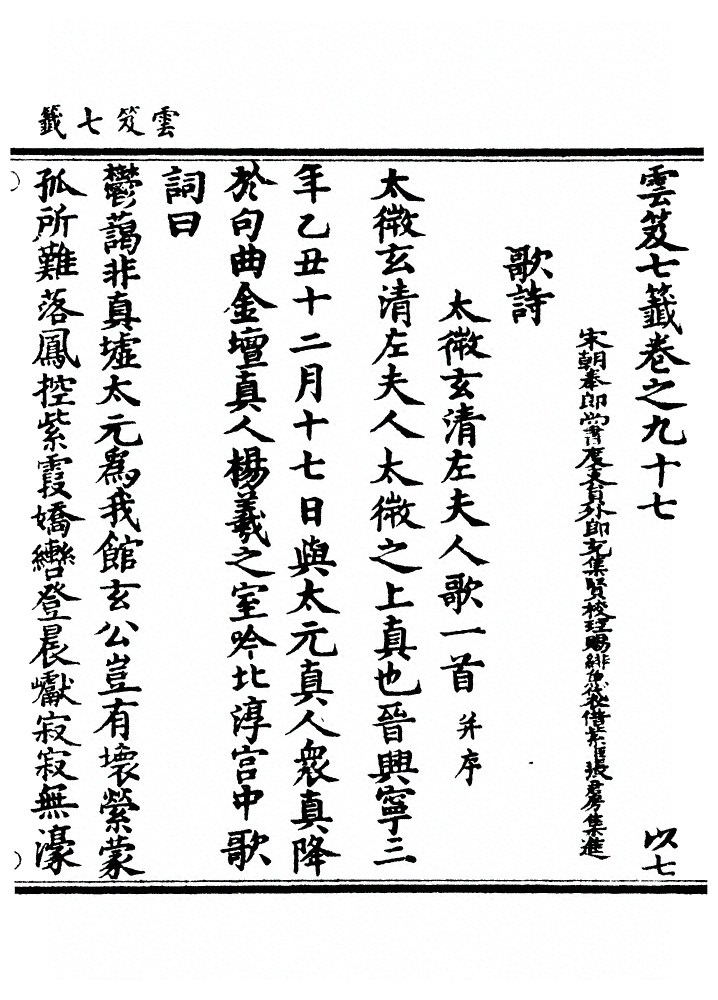 雲笈七籤
雲笈七籤卷之九十七
以七
宋朝奉郎尚書度支員外郎充集賢校理賜緋魚袋借紫臣張君房集進
歌詩
太微玄清左夫人歌一首 并序
太微玄清左夫人太微之上真也晉興寧三
年乙丑十二月十七日與太元真人衆真降
於句曲金壇真人楊羲之室吟北淳宮中歌
詞曰
鬱藹非真墟太元爲我館玄公豈有壞縈蒙
孤所難落鳳控紫霞矯轡登晨巘寂寂無濠